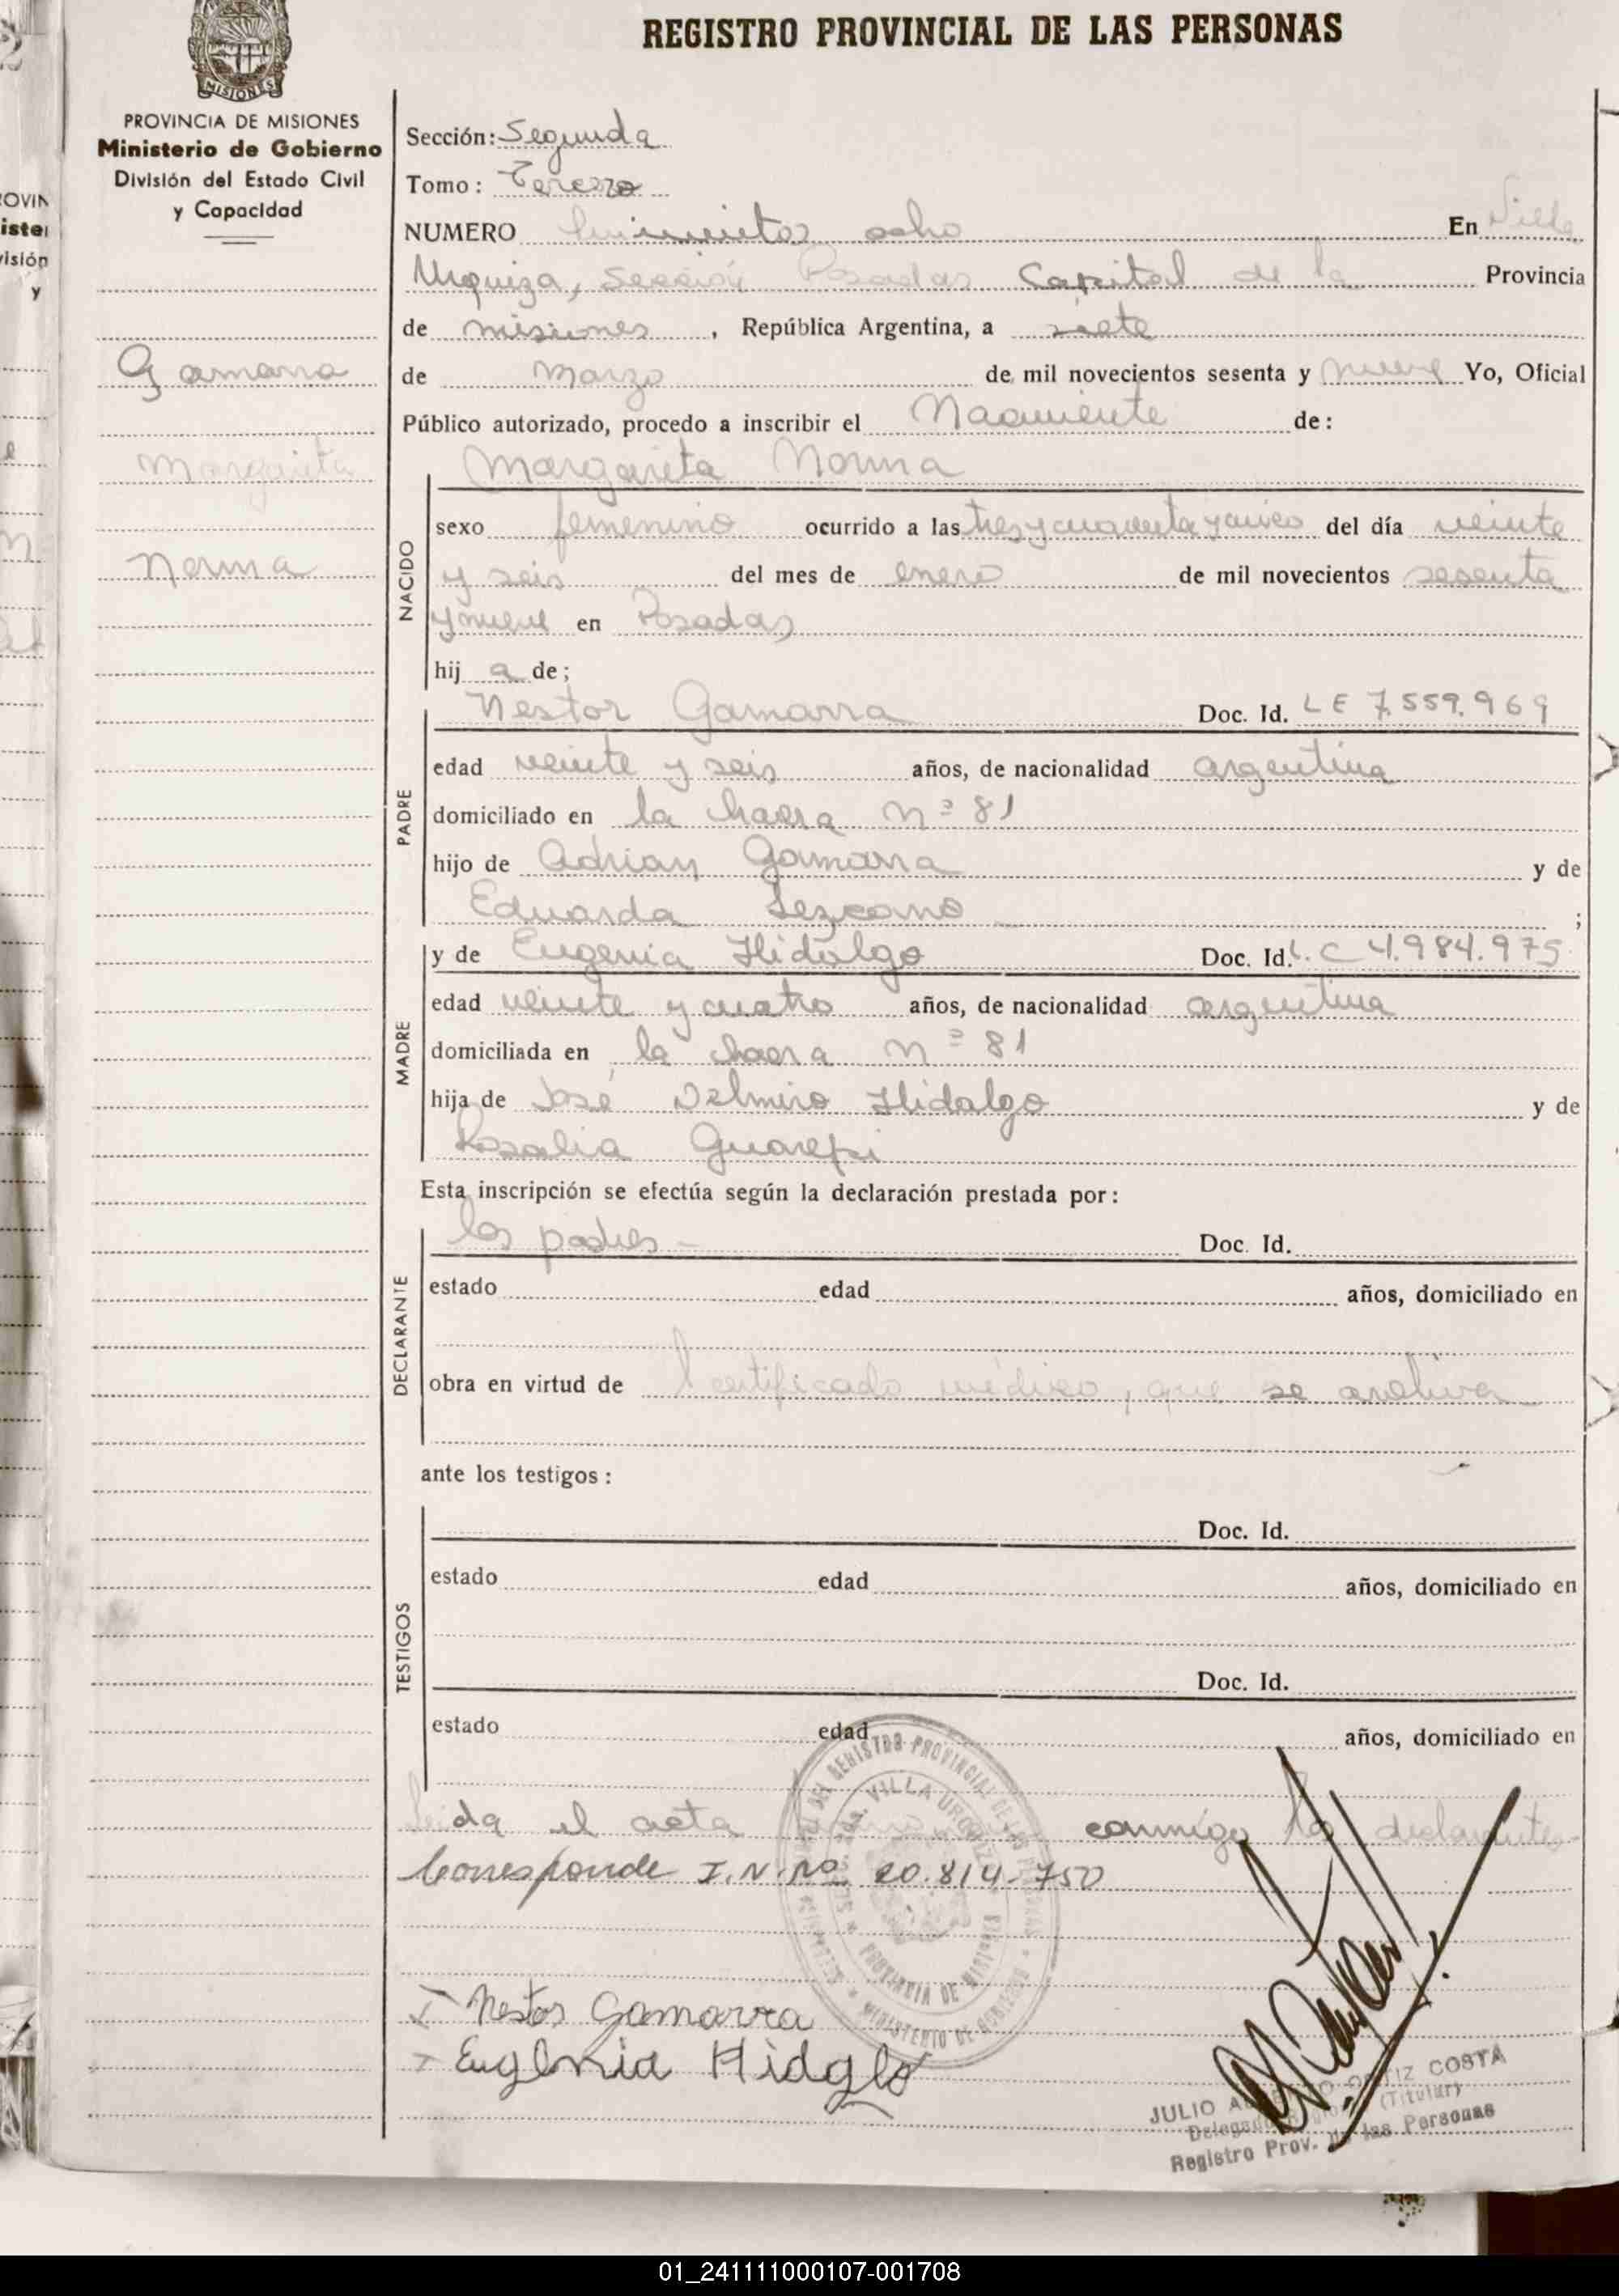 REGISTRO PROVINCIAL DE LAS PERSONAS
MISIONES
PROVINCIA DE MISIONES
Ministerio de Gobierno
División del Estado Civil
y Capacidad
Gamarra
Margarita
Norma
Sección: Segunda
Tomo: Tercero
NUMERO quinientos ocho En Villa
Urquiza, Sección Posadas Capital de la Provincia
de misiones, República Argentina, a siete
de marzo de mil novecientos sesenta y nueve Yo, Oficial
Público autorizado, procedo a inscribir el Nacimiento de:
Margarita Norma
NACIDO
sexo femenino ocurrido a las tres y cuarenta y cinco del día veinte
y seis del mes de enero de mil novecientos sesenta
y nueve en Posadas
hij a de;
PADRE
Nestor Gamarra Doc. Id. LE 7.559.969
edad veinte y seis años, de nacionalidad argentina
domiciliado en la chacra nº 81
hijo de Adrian Gamarra y de
Eduarda Lezcano ;
MADRE
y de Eugenia Hidalgo Doc. Id. L.C 4.984.975
edad veinte y cuatro años, de nacionalidad argentina
domiciliada en la chacra nº 81
hija de José Delmiro Hidalgo y de
Rosalia Guarepi
Esta inscripción se efectúa según la declaración prestada por:
DECLARANTE
los padres - Doc. Id.
estado edad años, domiciliado en
obra en virtud de certificado médico, que se archiva
ante los testigos:
TESTIGOS
Doc. Id.
estado edad años, domiciliado en
Doc. Id.
estado edad años, domiciliado en
Leida el acta conmigo los declarantes
Corresponde I.N.Nº 20.814-750
Nestor Gamarra
Eugenia Hidglo
JULIO ORTIZ COSTA
Delegado (Titular)
Registro Prov. de las Personas
01_241111000107-001708